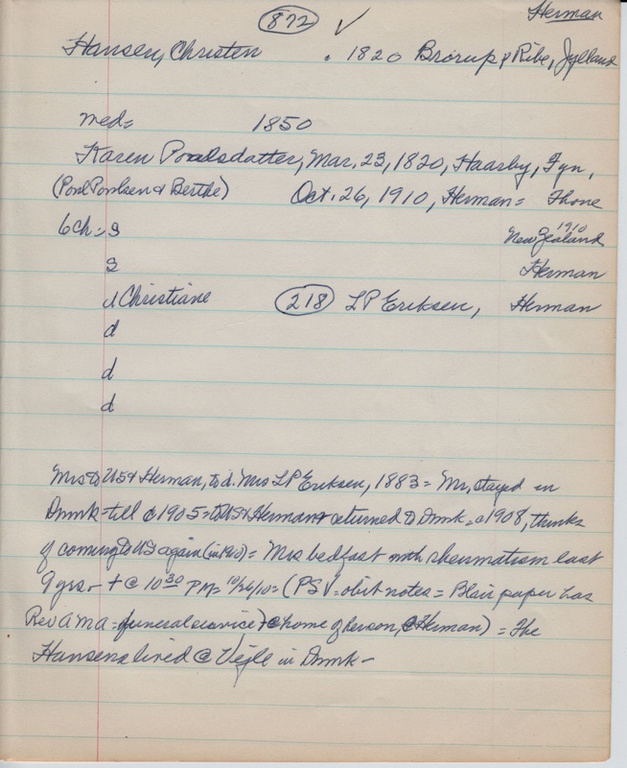 872 ✓ Herman
Hansen, Christen . 1820 Brorup & Ribe, Jylland
med = 1850
Karen Poulsdatter, Mar. 23, 1820, Haarby, Fyn,
(Poul Poulsen & Berthe) Oct. 26, 1910, Herman =
6 ch = s 1910 New Zealand
s Herman
d Christiane 218 LP Eriksen, Herman
d
d
d
Mrs to US & Herman, to d. Mrs LP Eriksen, 1883 = Mr. stayed in
Dnmk till c 1905 = to US & Herman returned to Dnmk c 1908, thinks
of coming to US again (in 1910) = Mrs bedfast with rheumatism last
9 yrs - + @ 10 30 PM = 10/26/10 = (PSV = obit notes = Blair paper has
Rev AMA = funeral service @ home of her son, @ Herman) = The
Hansens lived @ Vejle in Dnmk -